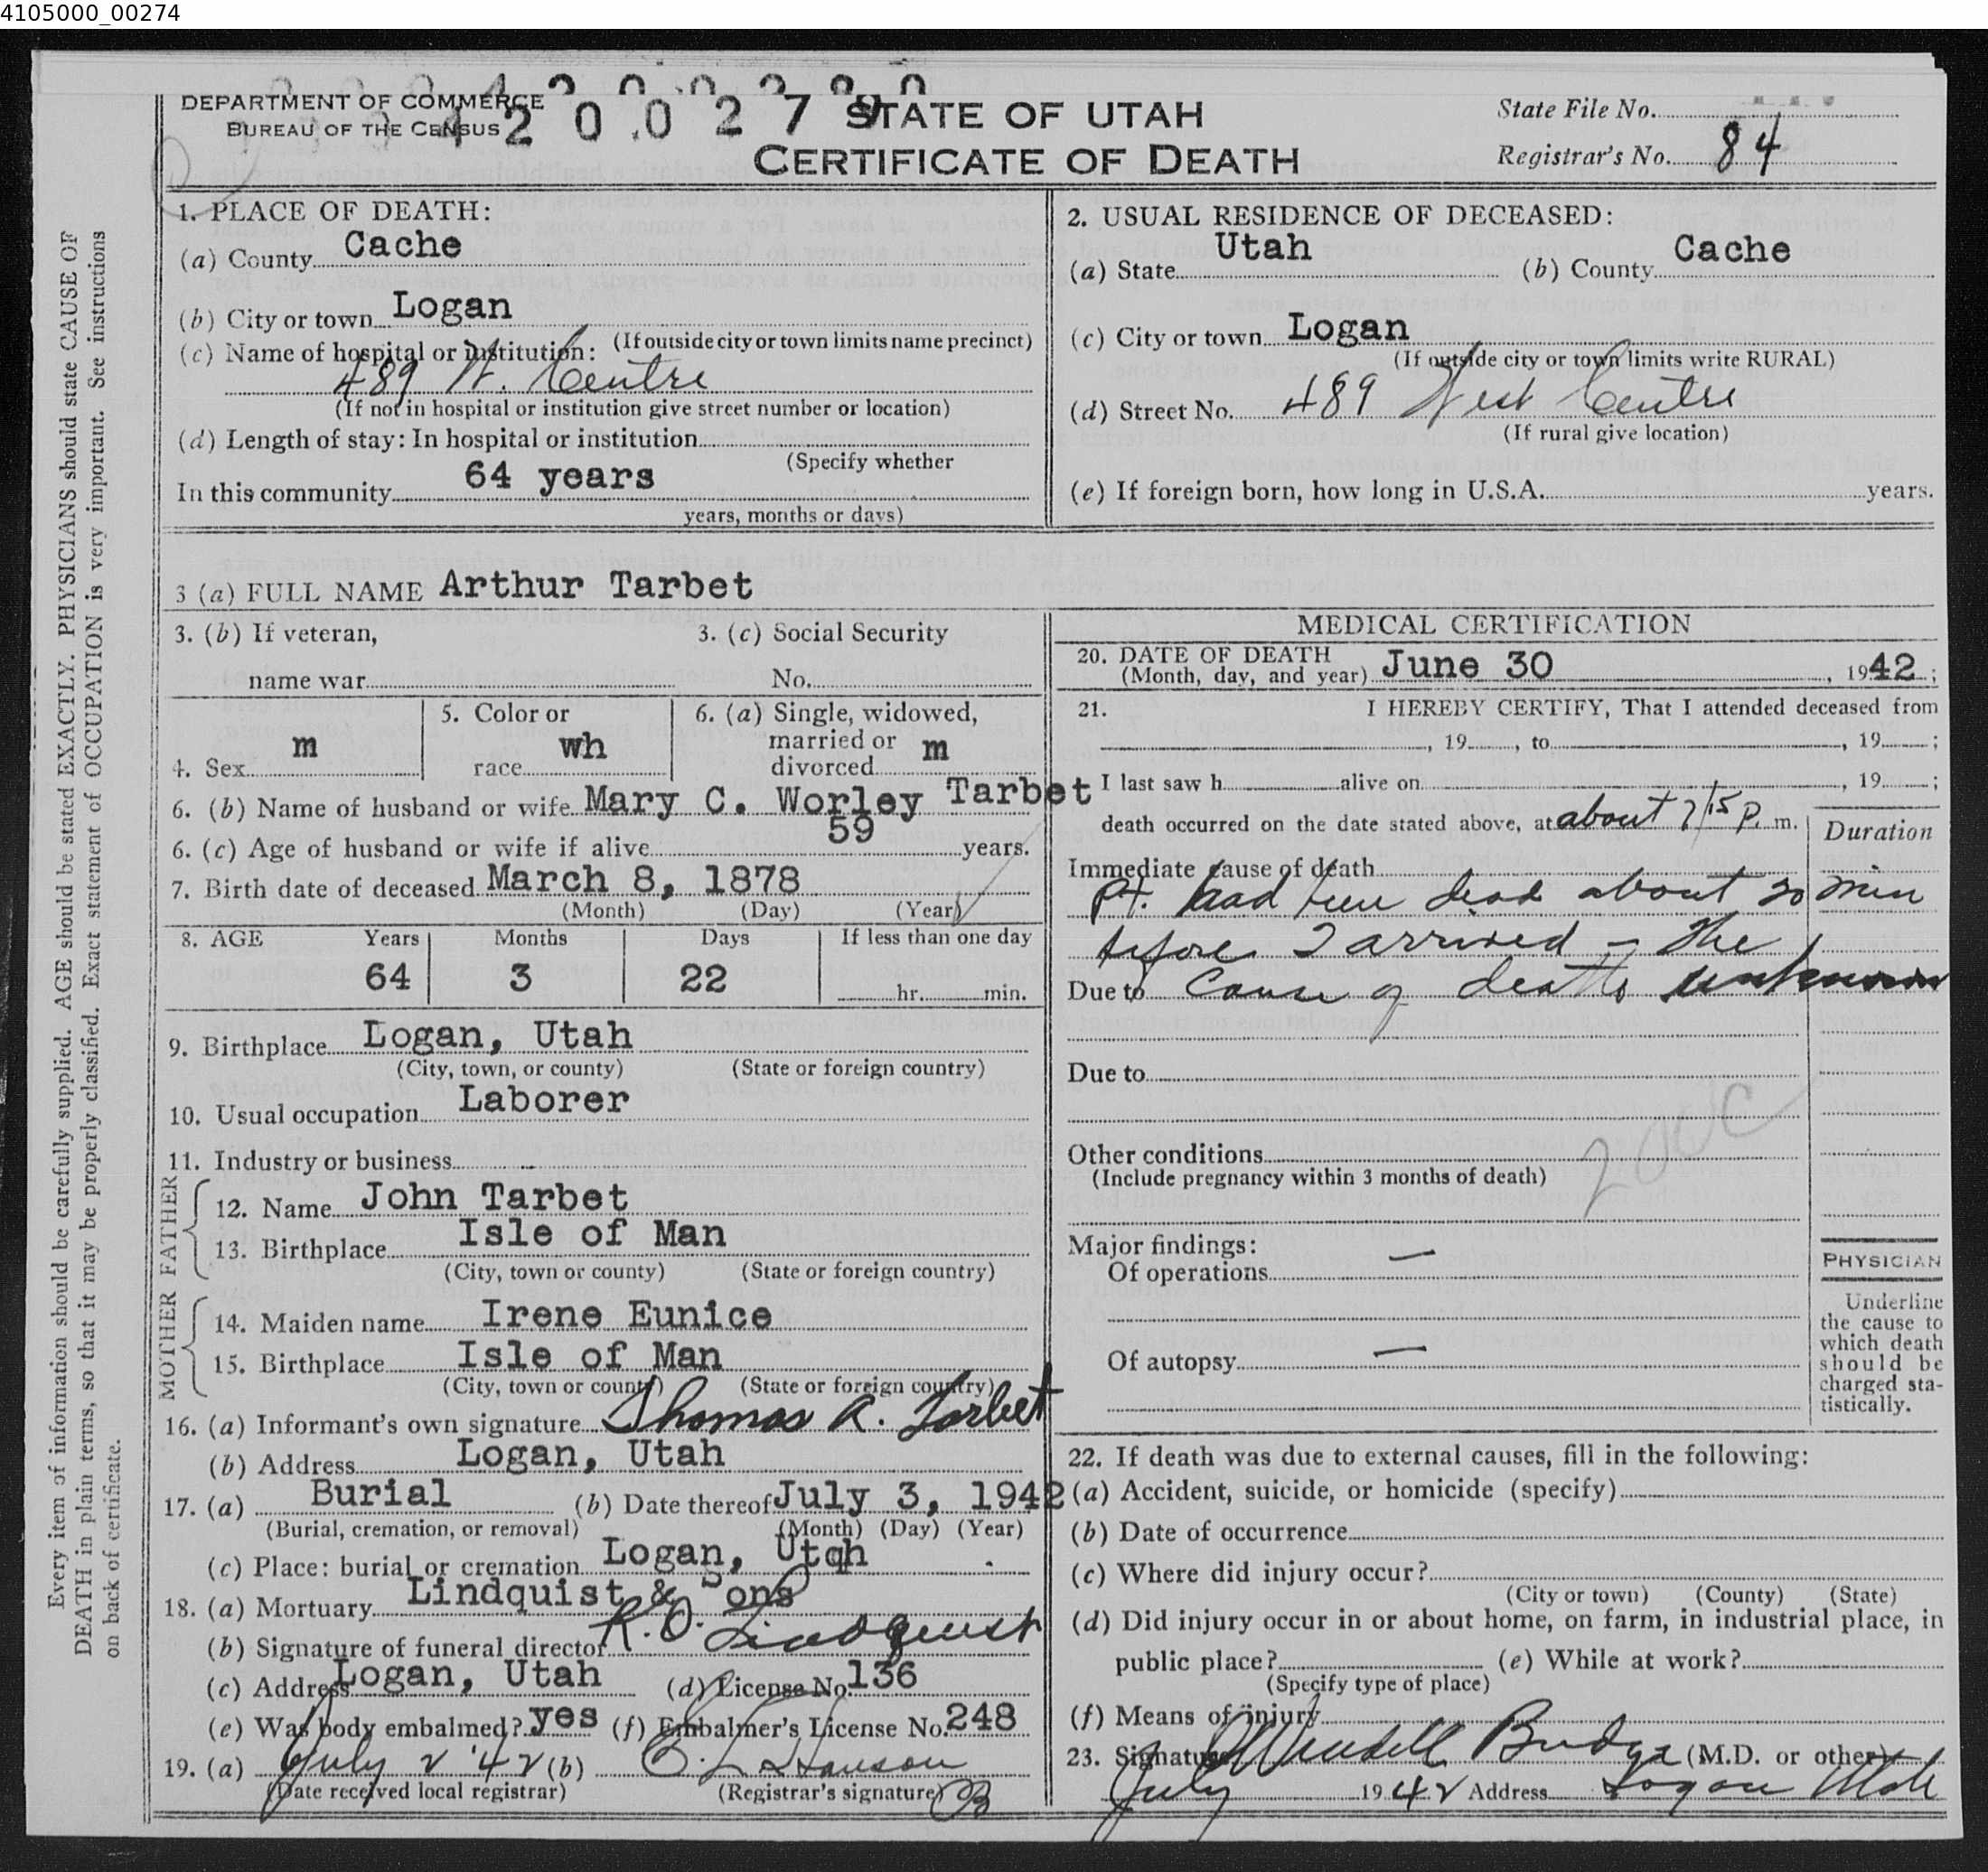 4105000_00274
DEPARTMENT OF COMMERCE
BUREAU OF THE CENSUS
STATE OF UTAH
CERTIFICATE OF DEATH
State File No.
Registrar's No. 84
Every item of information should be carefully supplied. AGE should be stated EXACTLY. PHYSICIANS should state CAUSE OF
DEATH in plain terms, so that it may be properly classified. Exact statement of OCCUPATION is very important. See instructions
on back of certificate.
1. PLACE OF DEATH:
(a) County Cache
(b) City or town Logan
(If outside city or town limits name precinct)
(c) Name of hospital or institution:
489 W. Centre
(If not in hospital or institution give street number or location)
(d) Length of stay: In hospital or institution
(Specify whether
In this community 64 years
years, months or days)
2. USUAL RESIDENCE OF DECEASED:
(a) State Utah (b) County Cache
(c) City or town Logan
(If outside city or town limits write RURAL)
(d) Street No. 489 West Centre
(If rural give location)
(e) If foreign born, how long in U.S.A. years.
3 (a) FULL NAME Arthur Tarbet
3. (b) If veteran, 3. (c) Social Security
name war No.
4. Sex m 5. Color or race wh 6. (a) Single, widowed, married or divorced m
6. (b) Name of husband or wife Mary C. Worley Tarbet
6. (c) Age of husband or wife if alive 59 years.
7. Birth date of deceased March 8, 1878
(Month) (Day) (Year)
8. AGE Years Months Days If less than one day
64 3 22 hr. min.
9. Birthplace Logan, Utah
(City, town, or county) (State or foreign country)
10. Usual occupation Laborer
11. Industry or business
FATHER
12. Name John Tarbet
13. Birthplace Isle of Man
(City, town or county) (State or foreign country)
MOTHER
14. Maiden name Irene Eunice
15. Birthplace Isle of Man
(City, town or county) (State or foreign country)
16. (a) Informant's own signature Thomas A. Tarbet
(b) Address Logan, Utah
17. (a) Burial (b) Date thereof July 3, 1942
(Burial, cremation, or removal) (Month) (Day) (Year)
(c) Place: burial or cremation Logan, Utah
18. (a) Mortuary Lindquist & Sons
(b) Signature of funeral director R. O. Lindquist
(c) Address Logan, Utah (d) License No. 136
(e) Was body embalmed? yes (f) Embalmer's License No. 248
19. (a) July 2 '42 (b) C. L. Hanson
(Date received local registrar) (Registrar's signature) B
MEDICAL CERTIFICATION
20. DATE OF DEATH
(Month, day, and year) June 30, 1942;
21. I HEREBY CERTIFY, That I attended deceased from
, 19 , to , 19 ;
I last saw h alive on , 19 ;
death occurred on the date stated above, at about 7/15 P. m.
Duration
Immediate cause of death
Pt. had been dead about 20 min
before I arrived - The
Due to Cause of death unknown
Due to
200c
Other conditions
(Include pregnancy within 3 months of death)
Major findings:
Of operations —
Of autopsy —
PHYSICIAN
Underline
the cause to
which death
should be
charged sta-
tistically.
22. If death was due to external causes, fill in the following:
(a) Accident, suicide, or homicide (specify)
(b) Date of occurrence
(c) Where did injury occur?
(City or town) (County) (State)
(d) Did injury occur in or about home, on farm, in industrial place, in
public place? (e) While at work?
(Specify type of place)
(f) Means of injury
23. Signature Wendell Budge (M.D. or other)
July 1942 Address Logan Utah